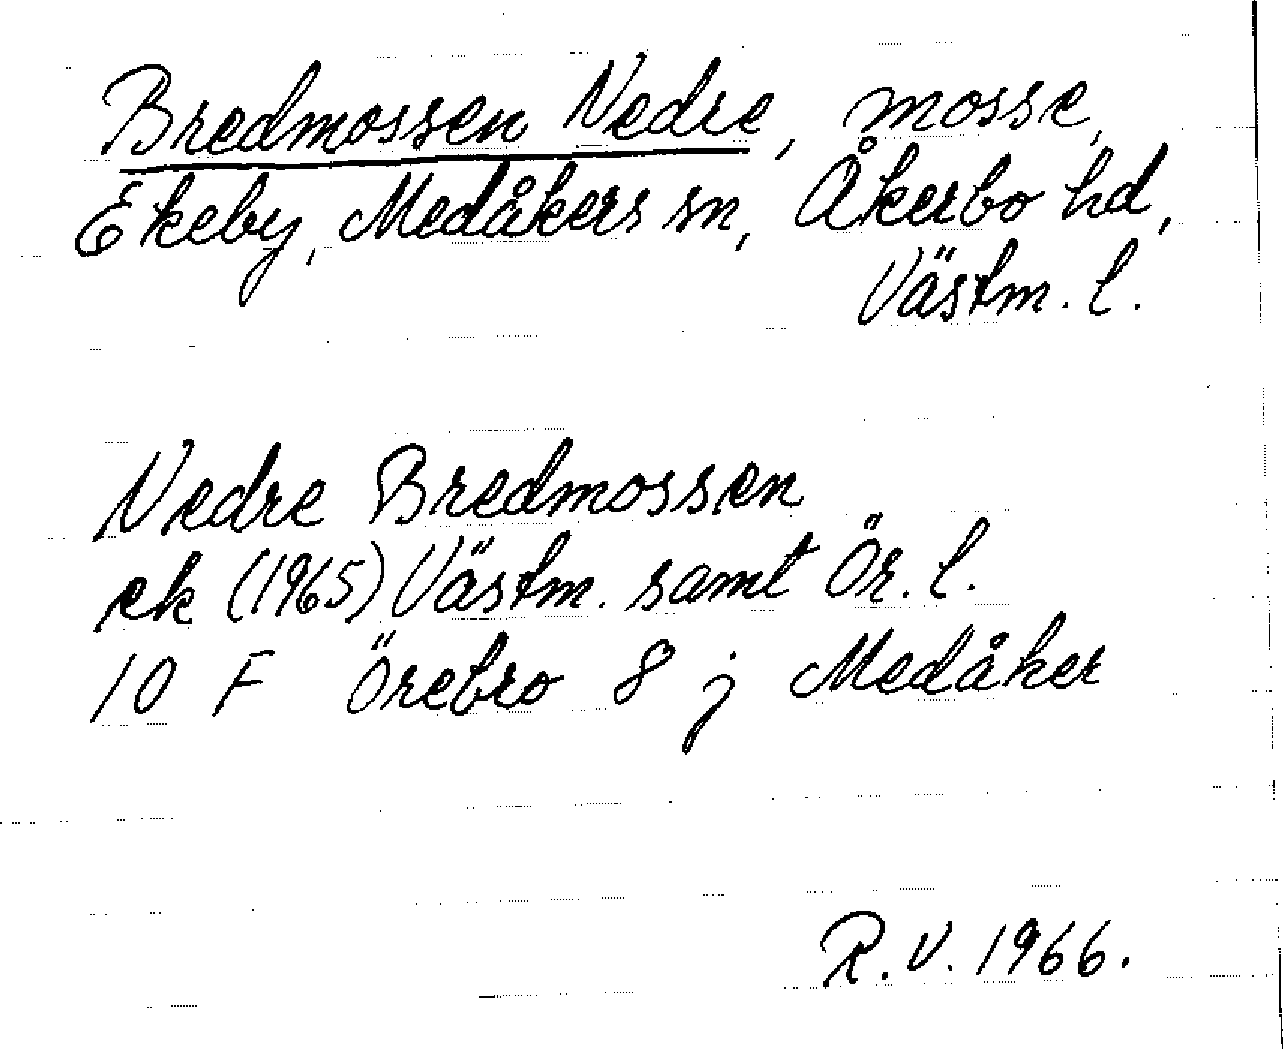 Bredmossen Nedre, mosse,
Ekeby, Medåkers sn, Åkerbo hd,
Västm. l.
Nedre Bredmossen
ek (1965) Västm. samt Ör. l.
10 F Örebro 8 j Medåker
R.V. 1966.